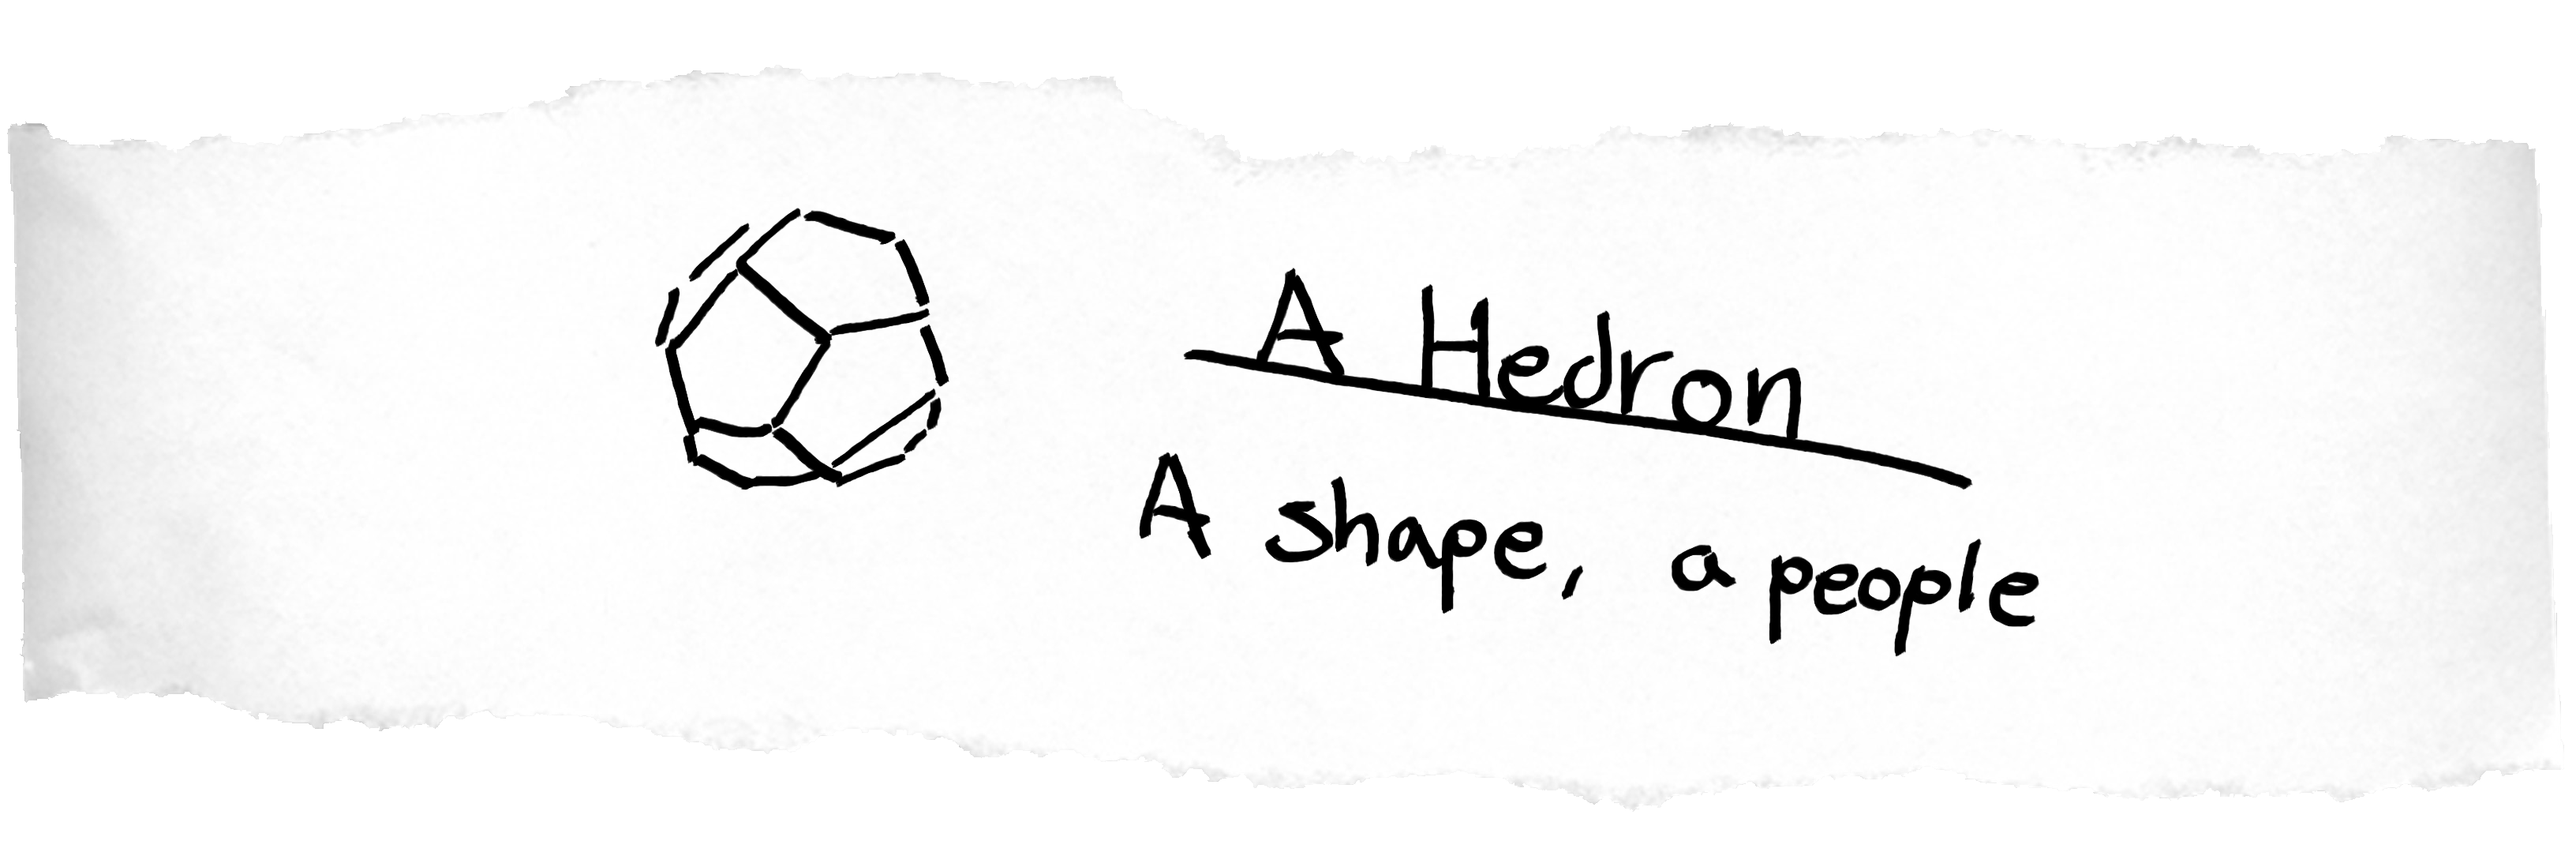 A Hedron
A shape, a people